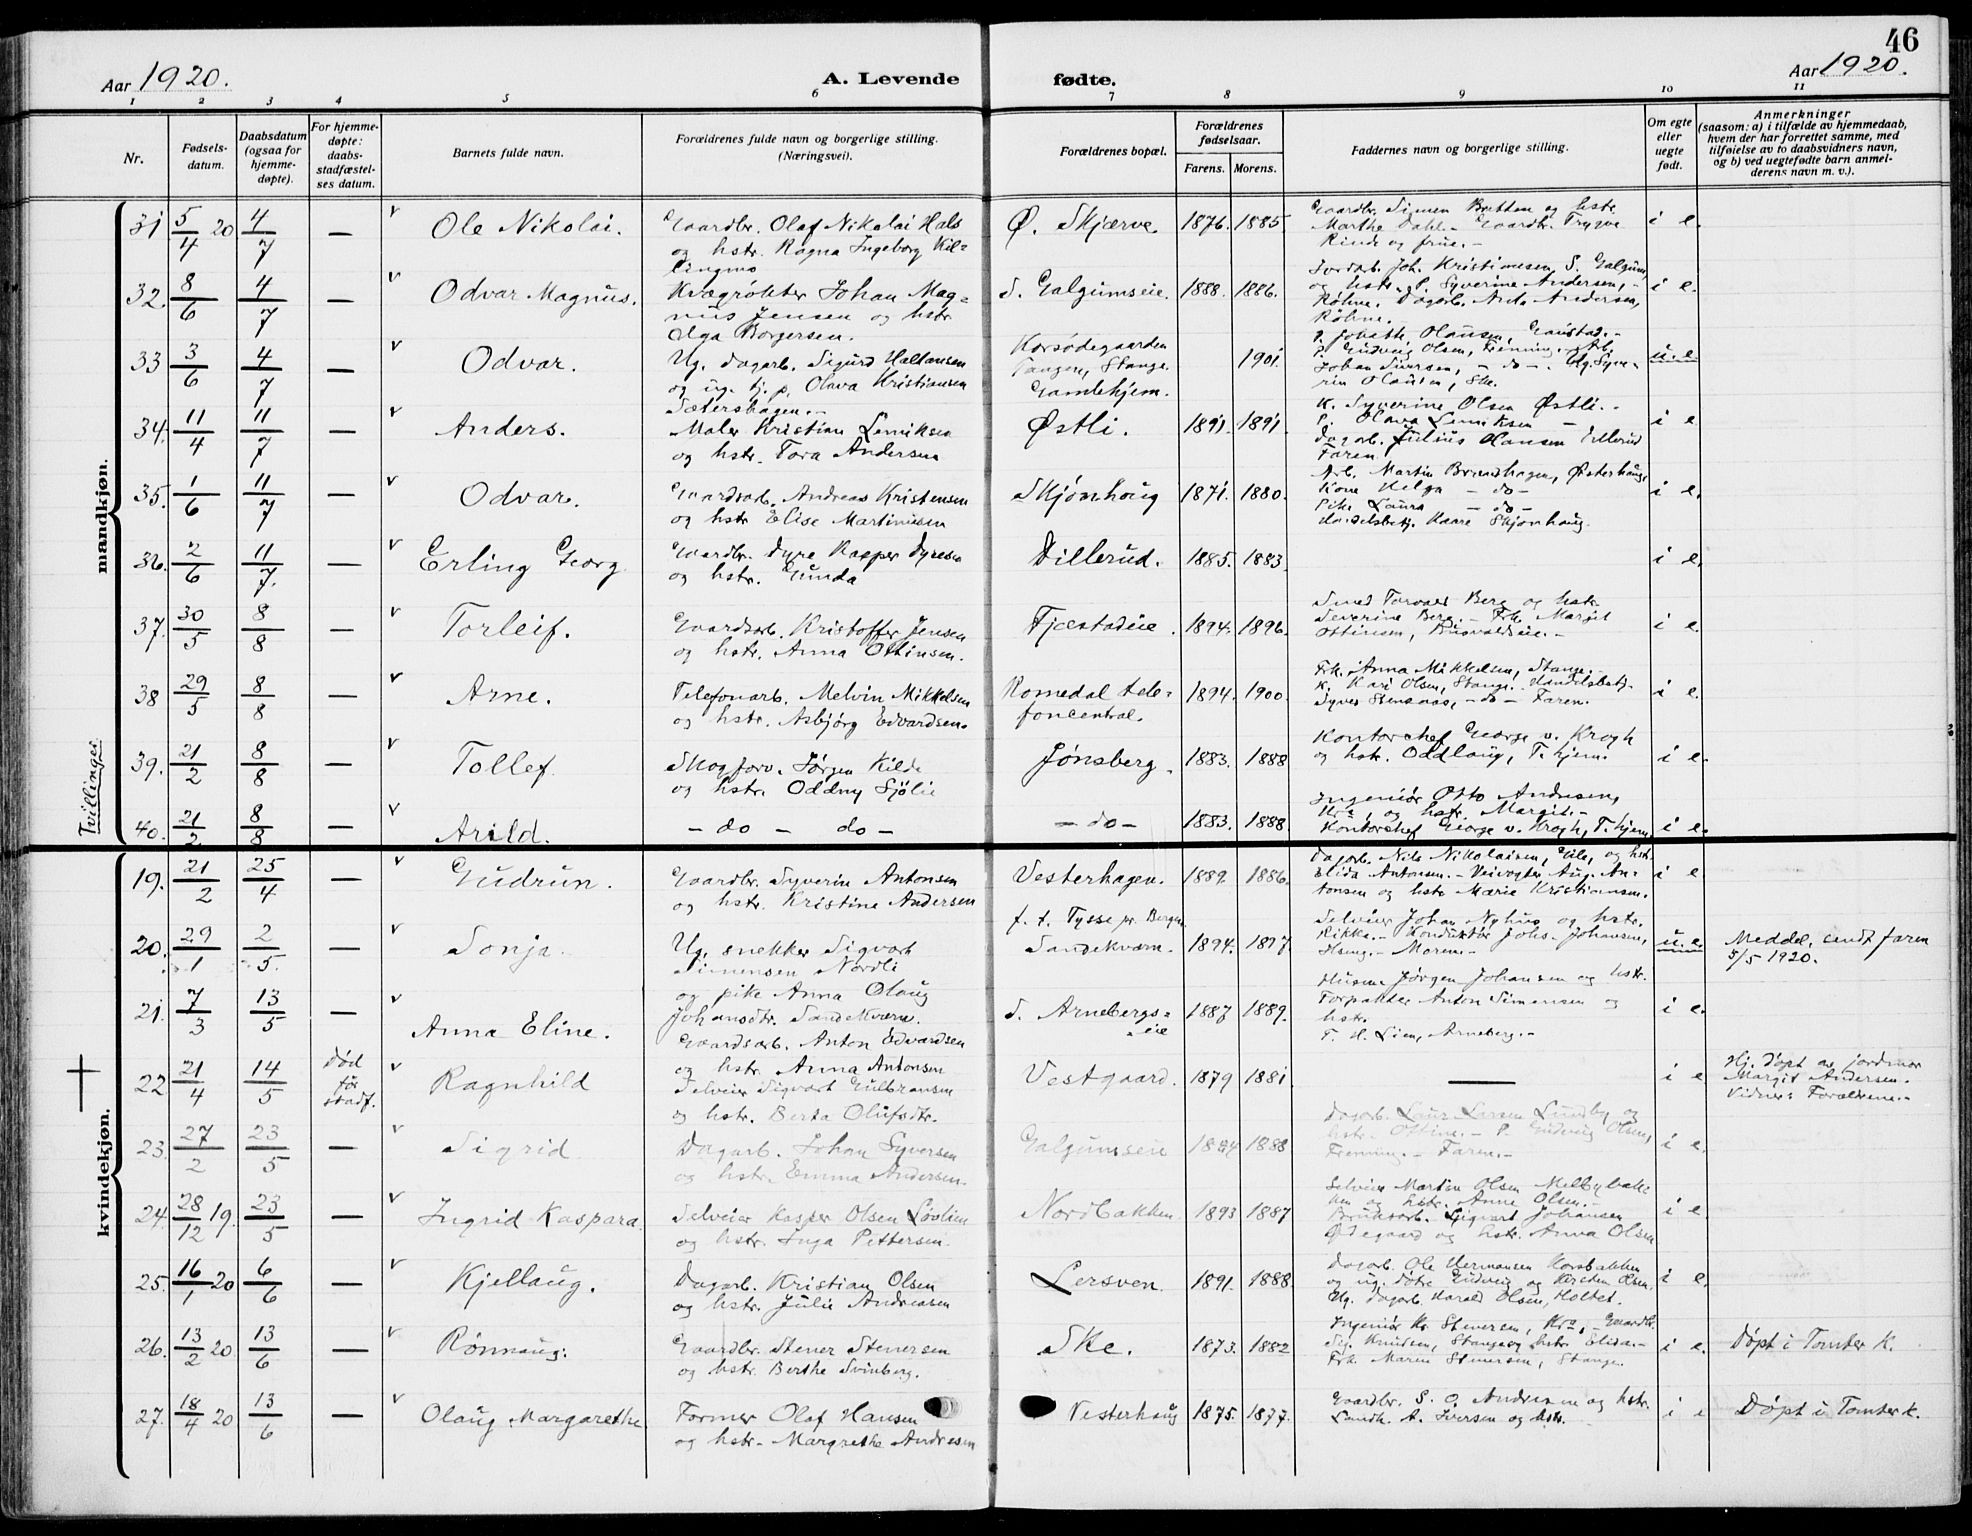 46
Aar 1920.
A. Levende fødte.
Aar 1920.
1 2 3 4 5 6 7 8 9 10 11
Nr.
Fødsels-
datum.
Daabsdatum
(ogsaa for
hjemme-
døpte).
For hjemme-
døpte:
daabs-
stadfæstel-
ses datum.
Barnets fulde navn.
Forældrenes fulde navn og borgerlige stilling.
(Næringsvei).
Forældrenes bopæl.
Forældrenes
fødselsaar.
Farens. Morens.
Faddernes navn og borgerlige stilling.
Om egte
eller
uegte
født.
Anmerkninger
(saasom: a) i tilfælde av hjemmedaab,
hvem der har forrettet samme, med
tilføielse av to daabsvidners navn,
og b) ved uegtefødte barn anmel-
derens navn m. v.).
mandkjøn.
31 5/4 20 4/7 — v Ole Nikolai. Gaardbr. Olaf Nikolai Hals
og hstr. Ragna Ingeborg Kil-
lingmo
Ø. Skjærve. 1876. 1885. Gaardbr. Simen og hstr.
Marthe Dahl. - Gaardbr. Trygve
Rinde og frue. - i e.
32. 8/6 4/7 — v Odvar Magnus. Kvægrøkter Johan Mag-
nus Jensen og hstr.
Olga Borgersen.
S. Galgumseie. 1888. 1886. Jordarb. Joh. Kristiansen, S. Galgum,
og hstr. P. Syverine Andersen, -
Røhne. Dagarb. Andersen,
Røhne. - i e.
33 3/6 4/7 — v Odvar. Ug. dagarb. Sigurd Haltansen
og ug. tj. p. Olava Kristiansen
Sætershagen. -
Korsødegaarden
Tangen, Stange.
Gamlehjem.
1901. Olausen, Gaustad. -
P. Gudveig Olsen, Frenning. - Arb.
Johan Iversen, - do - . Ug. Syve-
rin Olausen, Ske. u. e.
34. 11/4 11/7 — v Anders. Maler Kristian Lemiksen
og hstr. Tora Andersen
Østli. 1891. 1891. K. Syverine Olsen Østli. -
P. Olava Lemiksen -
Dagarb. Julius Olausen Lillerud
Faren i e
35. 1/6 11/7 — v Odvar. Gaardsarb. Andreas Kristensen
og hstr Elise Martinusen
Skjønhoug 1871. 1880. Arb. Martin Brendhagen, Østerhaug,
Kone Helga - do -
Pike Laura - do -
Handelsbetj. Kaare Skjønhaug. i e.
36. 2/6 11/7. — v Erling Georg. Gaardbr. Dyre Kasper Dyresen
og hstr. Gunda
Dillerud. 1885. 1883. i e.
37. 30/5 8/8 — v Torleif. Gaardsarb. Kristoffer Jensen
og hstr. Anna Ottinsen.
Fjæstadeie. 1894. 1896. Smed Torvald Berg og hstr.
Severine Berg. - Frk. Margit
Ottinsen, Busvaldseie. - i e.
38 29/5 8/8 — v Arne. Telefonarb. Melvin Mikkelsen
og hstr. Asbjørg Edvardsen.
Romedal tele-
foncentral.
1894. 1900. Frk. Anna Mikkelsen, Stange. -
K. Kari Olsen, Stange. Handelsbetj.
Syver Stensaas, - do - Faren. i e.
Tvillinger.
39. 21/2 8/8 — v Tollef. Skogforv. Jørgen Kilde
og hstr. Oddny Sjølie
Jønsberg. 1883. 1888 Kontorchef George v. Krogh
og hstr. Oddlaug, T. hjem. i e.
40. 21/2 8/8 — v Arild. - do - do - - do - 1883. 1888. Ingeniør Otto Andresen,
Kra., og hstr. Margit. -
Kontorchef George v. Krogh, T. hjem i e.
kvindekjøn.
19. 21/2 25/4 — v Gudrun. Gaardbr. Syverin Antonsen
og hstr. Kristine Andersen
Vesterhagen. 1889. 1886. Dagarb. Nils Nikolaisen, og hstr.
Elida Antonsen. - Veivogter Aug. An-
tonsen og hstr Marie Kristiansen. i e
20. 29/1 2/5. — v Sonja. Ug. snekker Sigvart
Simensen Nordli
og pike Anna Olaug
Johansdtr. Sandekværn.
f. t. Tysse pr. Bergen
Sandekværn. 1894. 1897 Selveier Johan Nyhus og hstr.
Rikka. - Konduktør Johs. Johansen,
Hseng. - Moren. - u. e. Meddel. sendt faren
5/5 1920.
21. 7/3 13/5 — v Anna Eline. Gaardsarb. Anton Edvardsen
og hstr. Anna Antonsen
S. Arnebergs-
eie
1887 1889. Husm. Jørgen Johansen og hstr.
Forpakter Anton Simensen og
hstr.
T. H. Lien, Arneberg. - i e.
22 21/4 14/5 Død
før
stadf. v Ragnhild Selveier Sigvart Gulbransen
og hstr. Berta Olufsdtr.
Vestgaard. 1879 1881. — i e Hj. døpt av jordmor
Margit Andersen.
Vidner: Forældrene. -
23. 27/2 23/5 — v Sigrid Dagarb. Johan Syversen
og hstr. Emma Andersen.
Galgumseie 1884 1888 Dagarb. Laur. Larsen Lundby og
hstr. Ottine. - P. Gudveig Olsen,
Frenning. - Faren. - i e.
24. 28/12 19. 23/5 — v Ingrid Kaspara. Selveier Kasper Olsen Løvlien
og hstr. Inga Pettersen.
Nordbakken 1893 1887 Selveier Martin Olsen Melbybak-
ken og hstr. Anne Olsen. -
Bruksarb. Sigvart Johansen
Ødegaard og hstr. Anna Olsen i e.
25. 16/1 20 6/6 — v Kjellaug. Dagarb. Kristian Olsen
og hstr. Julie Andreasen
Lersven. 1891. 1888. Dagarb. Ole Hermansen Korsbakken
og ug. døtre Gudveig og Kirsten Olsen.
Ug. dagarb. Harald Olsen, Holtet. i e.
26. 13/2 20. 13/6 — v Rønnaug. Gaardbr. Stener Stenersen
og hstr. Berthe Svinberg.
Ske. 1873. 1882 Ingeniør Kr. Stenersen, Kra. - Gaardbr.
Sig. Knudsen, Stange og hstr. Elida. -
Frk. Maren Stenersen, Stange. i e. Døpt i Tomter k.
27. 18/4 20 13/6 — v Olaug Margarethe Former Olaf Hansen
og hstr. Margrethe Andresen
Vesterhaug 1875. 1877. Gaardbr. S. O. Andresen og hstr.
Landh. A. Iversen og hstr. i e Døpt i Tomter k.